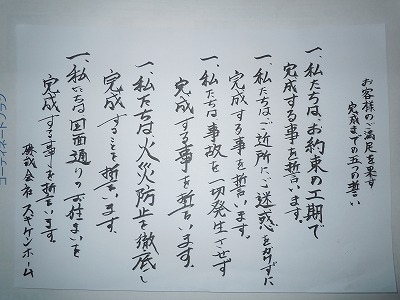 お客様のご満足を果す
完成までの五つの誓い
一、私たちは、お約束の工期で
完成する事を誓います。
一、私たちは、ご近所にご迷惑を掛けずに
完成する事を誓います。
一、私たちは事故を一切発生させず
完成する事を誓います。
一、私たちは火災防止を徹底し
完成することを誓います。
一、私たちは図面通りのお住まいを
完成する事を誓います。
株式会社スギケンホーム
コーディネートブック